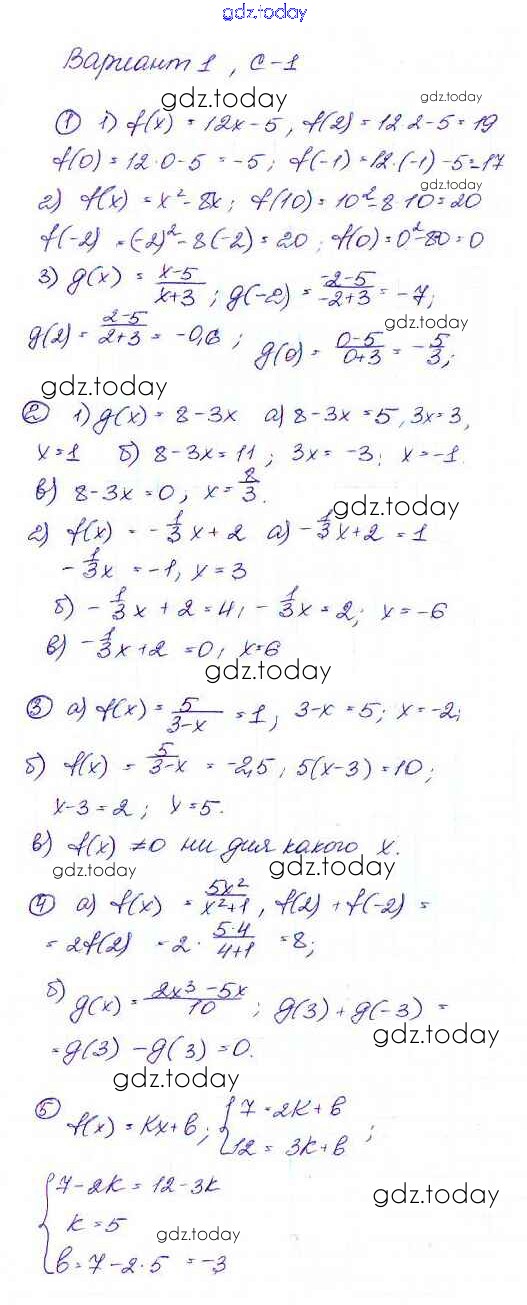 gdz.today
Вариант 1, С-1
gdz.today
gdz.today
① 1) f(x) = 12x-5, f(2) = 12·2-5 = 19
f(0) = 12·0-5 = -5; f(-1) = 12·(-1)-5=-17
gdz.today
2) f(x) = x²-8x; f(10) = 10²-8·10=20
f(-2) = (-2)²-8(-2) = 20; f(0) = 0²-80 = 0
3) g(x) = \frac{x-5}{x+3}; g(-2) = \frac{-2-5}{-2+3} = -7;
gdz.today
g(2) = \frac{2-5}{2+3} = -0,6; g(0) = \frac{0-5}{0+3} = -\frac{5}{3};
gdz.today
② 1) g(x) = 8-3x а) 8-3x = 5, 3x = 3,
x = 1 б) 8-3x = 11; 3x = -3; x = -1
в) 8-3x = 0, x = \frac{8}{3}.
gdz.today
2) f(x) = -\frac{1}{3}x+2 а) -\frac{1}{3}x+2 = 1
-\frac{1}{3}x = -1, x = 3
б) -\frac{1}{3}x + 2 = 4, -\frac{1}{3}x = 2; x = -6
в) -\frac{1}{3}x+2 = 0, x=6
gdz.today
③ а) f(x) = \frac{5}{3-x} = 1, 3-x = 5; x = -2;
б) f(x) = \frac{5}{3-x} = -2,5, 5(x-3) = 10;
x-3 = 2; x = 5.
в) f(x) ≠ 0 ни для какого x.
gdz.today
gdz.today
④ а) f(x) = \frac{5x²}{x²+1}, f(2) + f(-2) =
= 2f(2) = 2 · \frac{5·4}{4+1} = 8;
б) g(x) = \frac{2x³-5x}{10}; g(3) + g(-3) =
gdz.today
= g(3) - g(3) = 0.
gdz.today
⑤ f(x) = kx+b; { 7 = 2k+b
12 = 3k+b ;
{ 7-2k = 12-3k
gdz.today
k = 5
gdz.today
b = 7-2·5 = -3